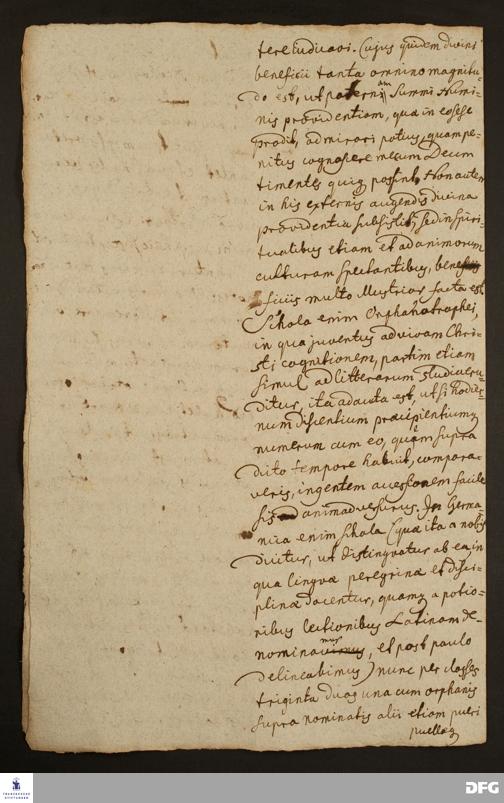 tere educari. Cujus quidem divini
beneficii tanta omnino magnitu-
do est, ut paternam Summi Numi-
nis providentiam, quæ in eo sese
prodit, admirari potius, quam pe-
nitus cognoscere mecum Deum
timentes quiq possint. Non autem
in his externis augendis divina
providentia subsistit, sed in spiri-
tualibus etiam et ad animorum
culturam spectantibus, bene
ficiis multo illustrior facta est.
Schola enim Orphanotrophei,
in qua juventus ad vivam Chri-
sti cognitionem, partim etiam
simul ad litterarum studia eru-
ditur, ita adaucta est, ut si hodier-
num discentium præcipientiumq
numerum cum eo, quem supra
dicto tempore habuit, compara-
veris, ingentem accessionem facile
sis animadversurus. In Germa-
nica enim schola (quæ ita a nobis
dicitur, ut distinguatur ab ea in
qua lingvæ peregrinæ et disci-
plinæ docentur, quamq a potio-
ribus lectionibus Latinam de-
nominamus, et post paulo
delineabimus) nunc per classes
triginta duas una cum orphanis
supra nominatis alii etiam pueri
puellæq
FRANCKESCHE STIFTUNGEN
DFG